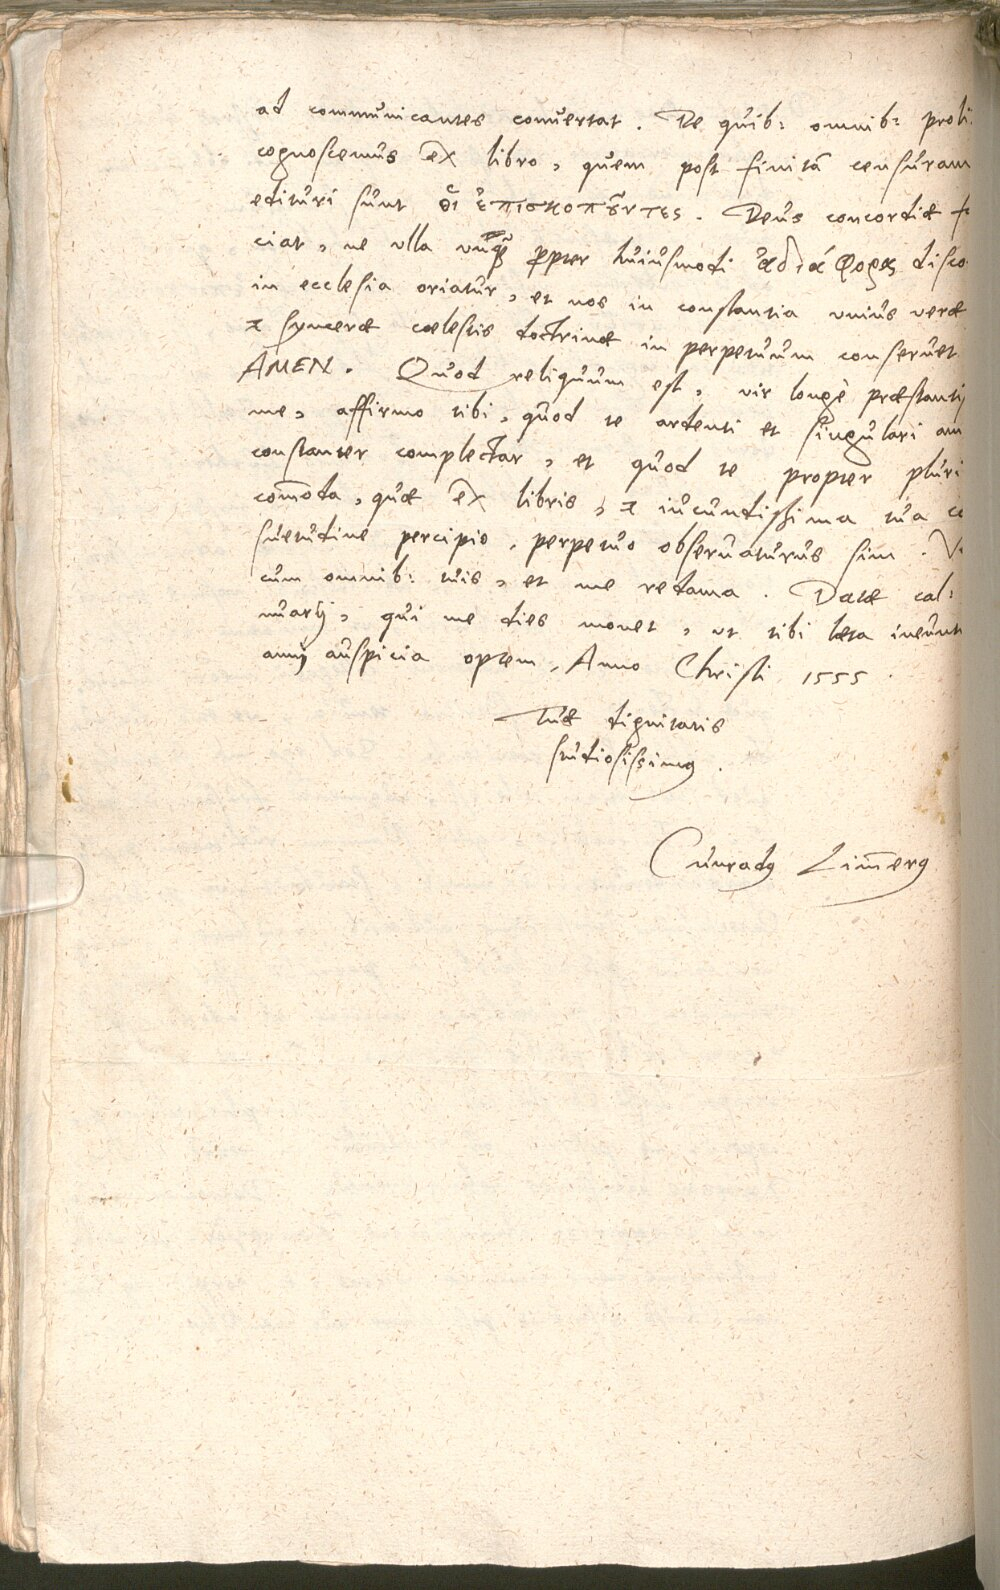 ad communicantes conuertat. De quib: omnib: proli
cognoscemus ex libro, quem post finitā censuram
edituri sunt οἱ ἐπισκοποῦντες. Deus concordiæ f
ciat, ne ulla unq̃ ꝓpter huiusmodi ἀδιάφορα disco
in ecclesia oriatur, et nos in constantia unius veræ
& synceræ cœlestis doctrinæ in perpetuum conseruet
AMEN. Quod reliquum est, vir longè præstantiſ
me, affirmo tibi, quod te ardenti et singulari am
constanter complectar, et quod te propter pluri
com̄oda, quæ ex libris, & iucundissima tua co
suetudine percipio, perpetuo obseruaturus sim. V
cum omnib: tuis, et me redama. Datæ cal:
nuarij, qui me dies monet, ut tibi læta ineunt
anni auspicia optem, Anno Christi 1555.
Tuæ dignitatis
studiosissimꝰ.
Cunradꝰ Lim̄erꝰ